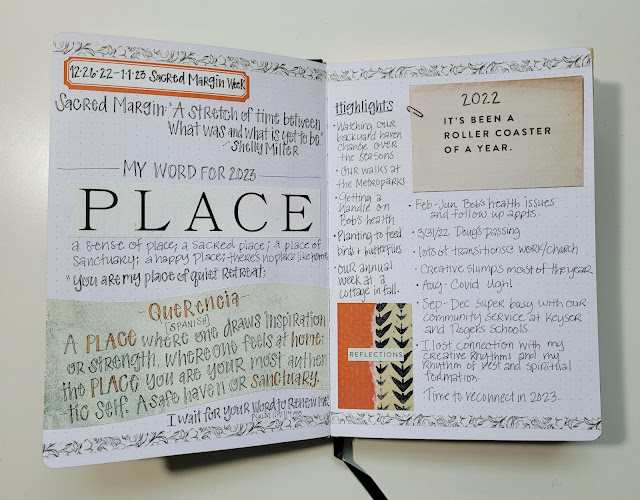 12·26·22-1·1·23 Sacred Margin Week
Sacred Margin: "A stretch of time between
what was and what is yet to be"
-Shelly Miller
MY WORD FOR 2023
PLACE
a sense of place; a sacred place; a place of
sanctuary; a happy place; there's no place like home
"You are my place of quiet retreat;
-Querencia-
[SPANISH]
A PLACE where one draws inspiration
or strength, where one feels at home;
the PLACE you are your most authen
tic self. A safe haven or sanctuary.
I wait for your Word to renew me."
Highlights
• Watching our
backyard haven
change over
the seasons
• Our walks at
the Metroparks
• Getting a
handle on
Bob's health
• Planting to feed
birds + butterflies
• Our annual
week at a
cottage in fall.
REFLECTIONS
2022
IT'S BEEN A
ROLLER COASTER
OF A YEAR.
• Feb-Jun Bob's health issues
and follow up appts.
• 3/31/22 Doug's passing
• lots of transitions @ work/church
• Creative slumps most of the year
• Aug-Covid Ugh!
• Sep-Dec super busy with our
community service at Keyser
and Rogers schools
• I lost connection with my
creative rhythms and my
rhythm of rest and spiritual
formation.
Time to reconnect in 2023.